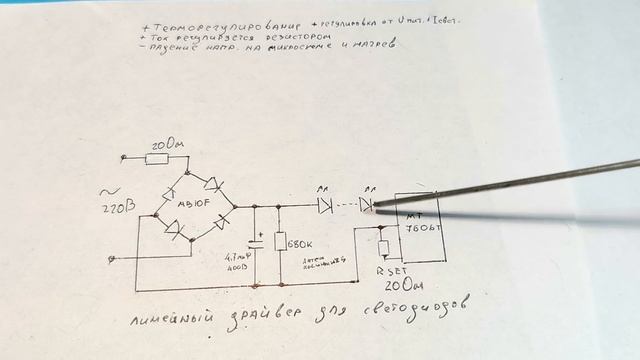 + ТЕРМОРЕГУЛИРОВАНИЕ + РЕГУЛИРОВКА ОТ U ПИТ. + I СВЕТ.
+ ТОК РЕГУЛИРУЕТСЯ РЕЗИСТОРОМ
- ПАДЕНИЕ НАПР. НА МИКРОСХЕМЕ И НАГРЕВ
20 Ом
~
220В
MB10F
+
4,7мкФ
400В
680К
MT
7606T
R SET
20 Ом
ЛИНЕЙНЫЙ ДРАЙВЕР ДЛЯ СВЕТОДИОДОВ